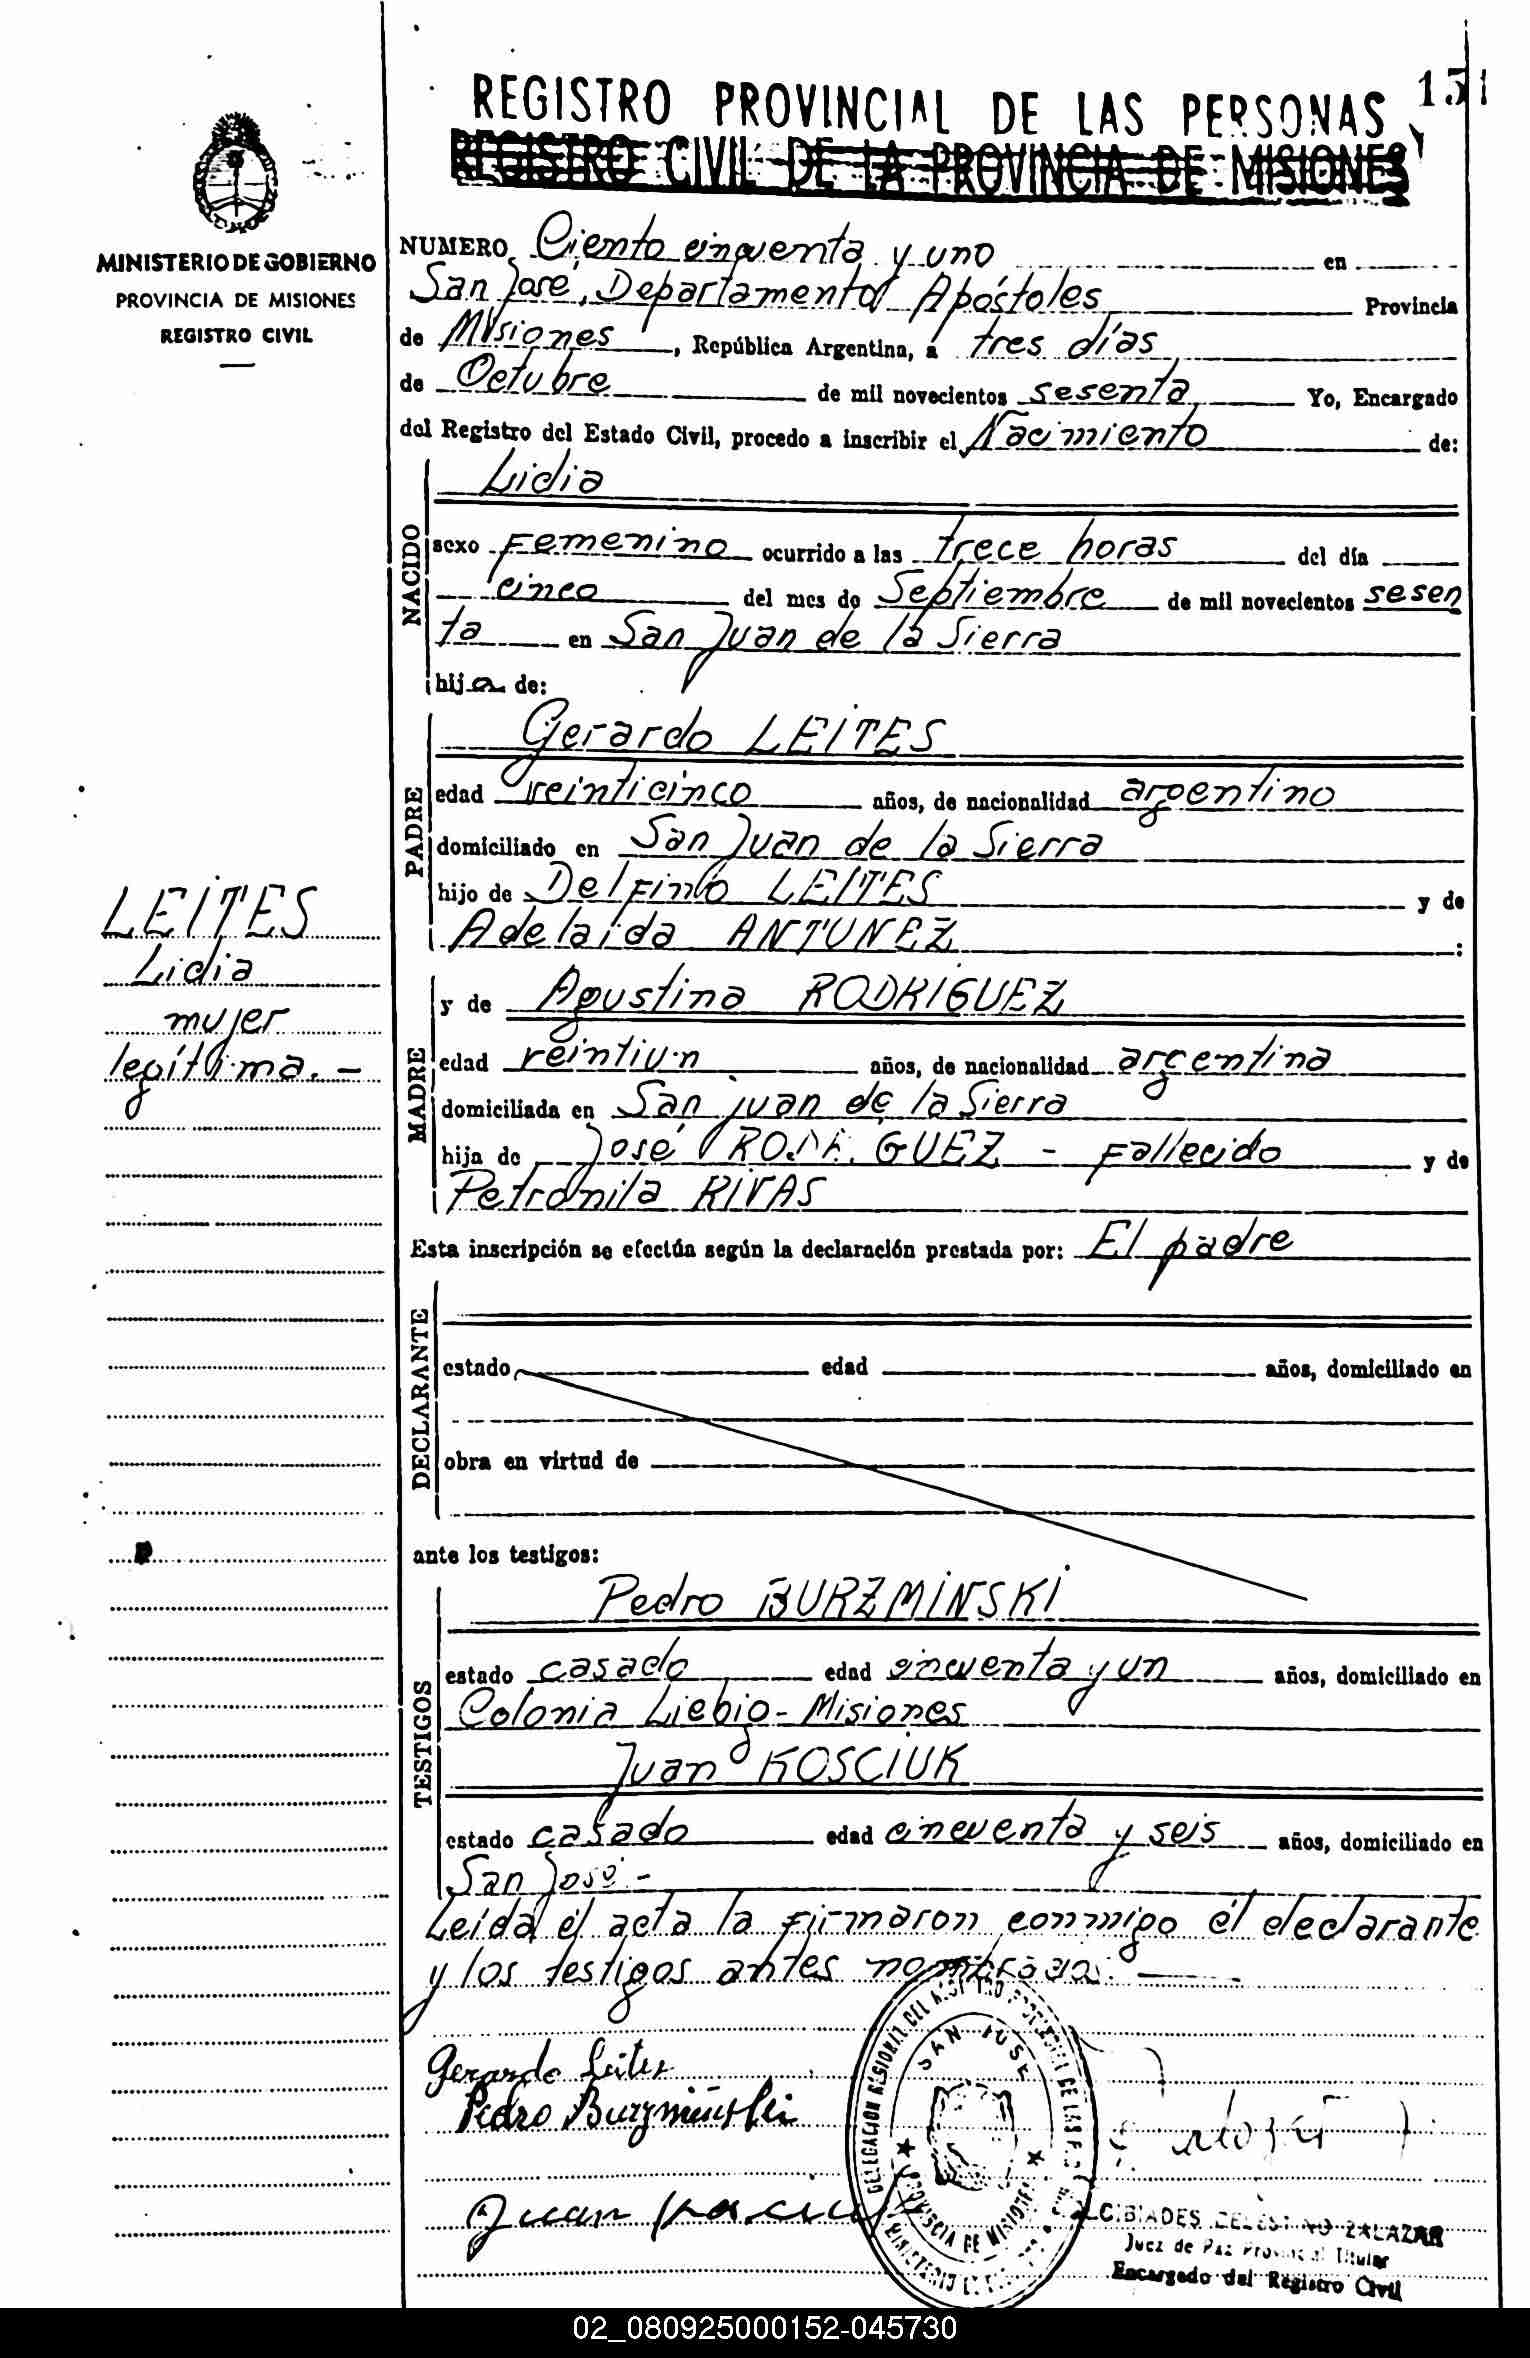 151
REGISTRO PROVINCIAL DE LAS PERSONAS
REGISTRO CIVIL DE LA PROVINCIA DE MISIONES
MINISTERIO DE GOBIERNO
PROVINCIA DE MISIONES
REGISTRO CIVIL
NUMERO Ciento cincuenta y uno en
San José, Departamento Apóstoles Provincia
de Misiones, República Argentina, á tres días
de Octubre de mil novecientos sesenta Yo, Encargado
del Registro del Estado Civil, procedo a inscribir el Nacimiento de:
NACIDO
Lidia
sexo Femenino ocurrido a las trece horas del día
cinco del mes de Septiembre de mil novecientos sesen
ta en San Juan de la Sierra
hija de:
PADRE
Gerardo LEITES
edad veinticinco años, de nacionalidad argentino
domiciliado en San Juan de la Sierra
hijo de Delfino LEITES y de
Adelaida ANTUNEZ:
LEITES
Lidia
mujer
legítima.-
MADRE
y de Agustina RODRIGUEZ
edad veintiun años, de nacionalidad argentina
domiciliada en San juan de la Sierra
hija de José RODRIGUEZ - Fallecido y de
Petronila RIVAS
Esta inscripción se efectúa según la declaración prestada por: El padre
DECLARANTE
estado edad años, domiciliado en
obra en virtud de
ante los testigos:
TESTIGOS
Pedro BURZMINSKI
estado casado edad cincuenta y un años, domiciliado en
Colonia Liebig - Misiones
Juan KOSCIUK
estado casado edad cincuenta y seis años, domiciliado en
San José.-
Leída el acta la firmaron conmigo el declarante
y los testigos antes nombrados.
Gerardo Leites
Pedro Burzmiński
Juan
DELEGACION REGIONAL DEL REGISTRO PROVINCIAL DE LAS
SAN JOSE
PROVINCIA DE MISIONES
MINISTERIO
ALCIBIADES CELESTINO ZALAZAR
Juez de Paz Provincial Titular
Encargado del Registro Civil
02_080925000152-045730